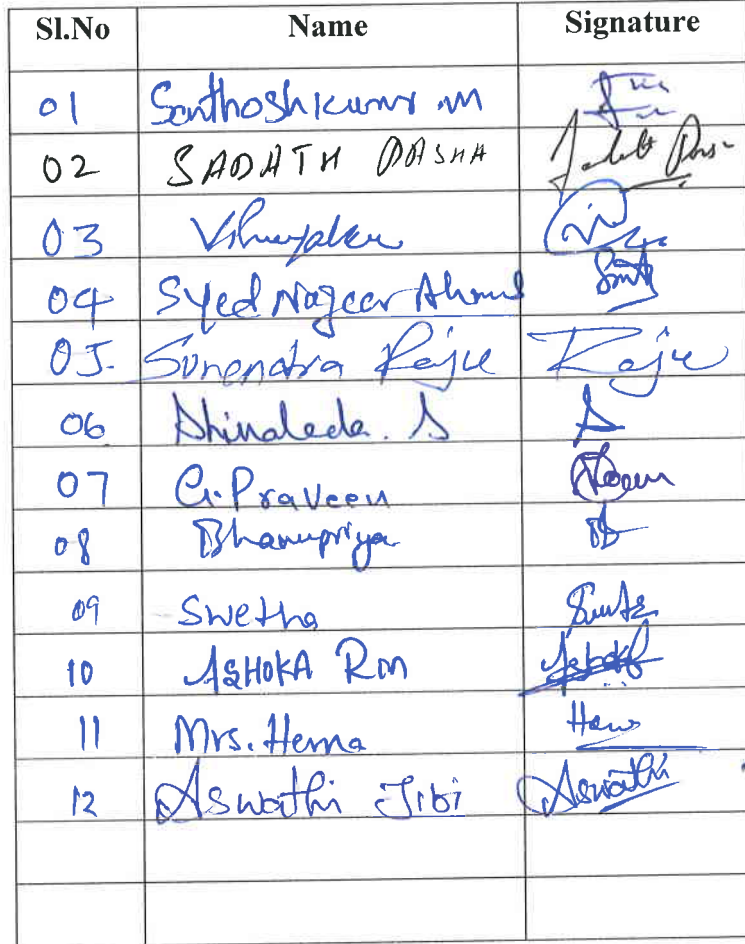 Sl.No Name Signature
01 Santhoshkumar .M
02 SADATH PASHA
03
04 Syed Nazeer Ahmed
05. Surendra Raju Raju
06 A
07 G.Praveen
08 Bhanupriya
09 Swetha
10 ASHOKA Rm Ashok
11 Mrs. Hema Hema
12 Aswathi Jibi Aswathi